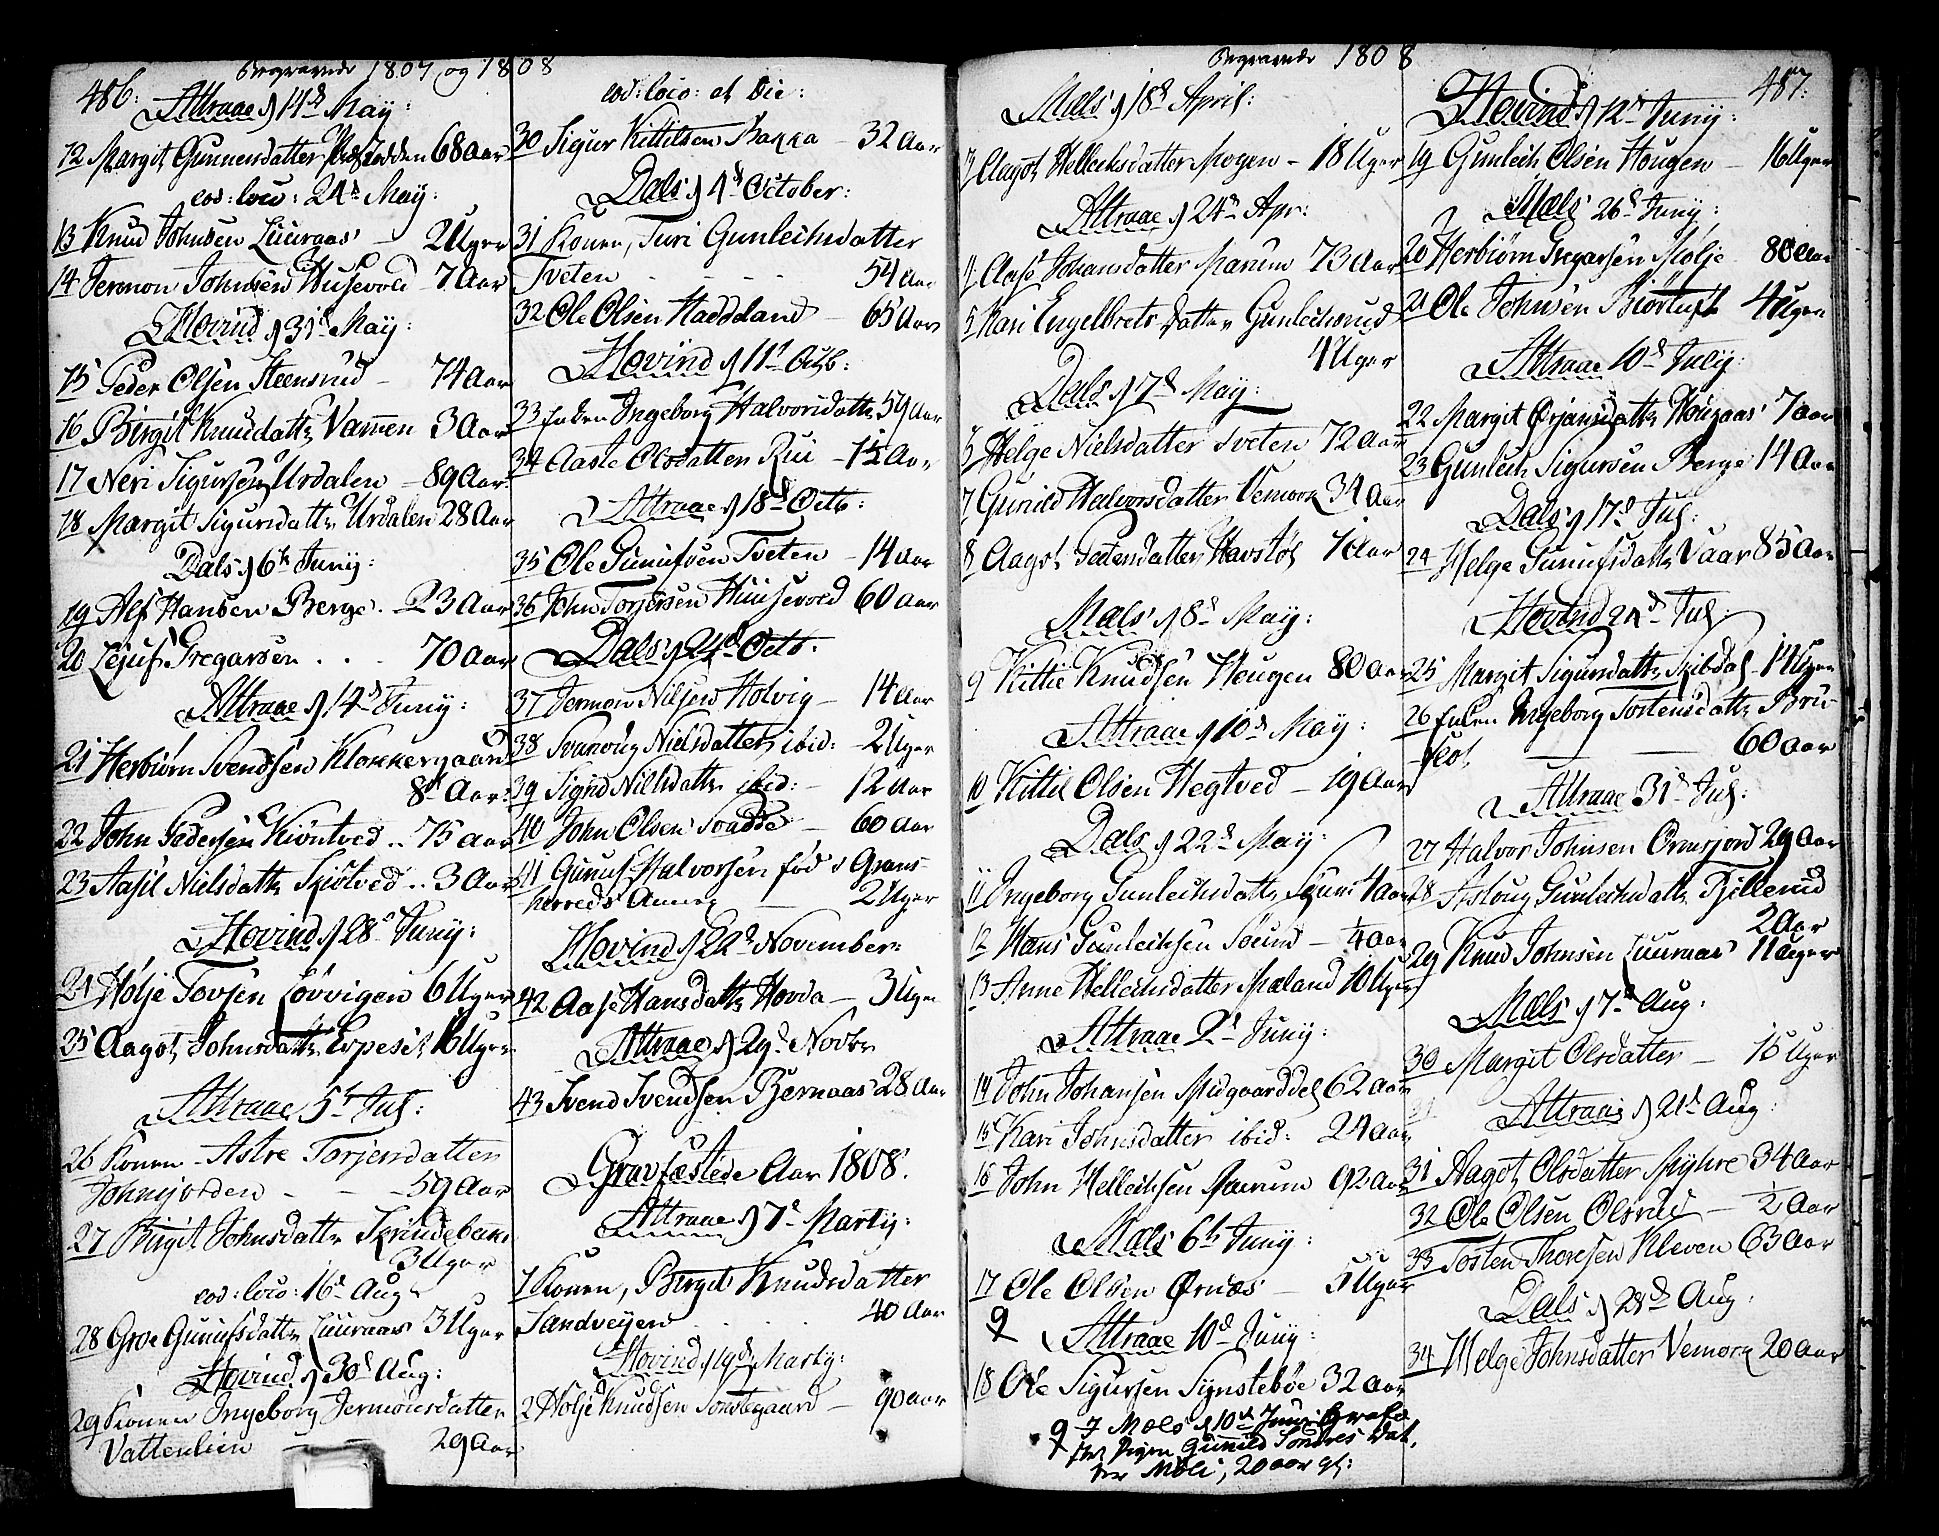 486:
Begravede 1807 og 1808
Attraae d 14d May:
12 Margit Gunnersdatter 68 Aar
eod: loco: 24d May:
13 Knud Johnsen Luuraas – 2 Uger
14 Jermon Johnsen Husevold – 7 Aar
Hovind d 31d May:
15 Peder Olsen Steensrud – 74 Aar
16 Birgit Knudsdattr Vamen 3 Aar
17 Neri Sigursen Urdalen – 89 Aar
18 Margit Sigursdattr Urdalen 28 Aar
Dals d 6te Juny:
19 Alf Hansen Berge – 23 Aar
20 Lejuf Gregarsen . . . 70 Aar
Attraae d 14d Juny:
21 Herbiørn Svendsen Klokkergaard
8d Aar:
22 John Pedersen Kiøntved .. 75 Aar
23 Aasil Nielsdattr Skiøtved .. 3 Aar
Hovind d 28d Juny:
24 Holje Tovsen Løvvigen 6 Uger
25 Aagot Johnsdattr Erpesit 16 Uger
Attraae 5t Jul:
26 Konen – Astre Torjersdatter
Johnsjorden – – – 59 Aar
27 Birgit Johnsdattr Skrindebakk
3 Uger
eod: loco: 16d Aug
28 Groe Gunufsdattr Luuraas 3 Uger
Hovind d 30d Aug:
29 Konen Ingeborg Jermonsdatter
Vattenlien – 29 Aar
eod: loco: et Die:
30 Sigur Kittilsen Bakka – 32 Aar
Dals d 4d October:
31 Konen, Turi Gunleichsdatter
Tveten – – – – 54 Aar
32 Ole Olsen Haddeland – 65 Aar
Hovind d 11t Octb:
33 Enken Ingeborg Halvorsdattr 59 Aar
34 Aaste Olsdatter Rui – 1½ Aar
Attraae d 18d Octb:
35 Ole Gunufsen Tveten – 14 Aar
36 John Torjersen Huusevold 60 Aar
Dals d 21d Octb.
37 Jermon Nilsen Holvig – 14 Aar
38 Svanoug Nielsdatter, ibid: – 2 Uger
39 Sigrid Nielsdattr ibid: – 12 Aar
40 John Olsen Saadde – 60 Aar
41 Gunuf Halvorsen fød i Grans-
herreds Annex – 2 Uger
Hovind d 22d November:
42 Aase Hansdattr Hovda – 3 Uger
Attraae d 29d Novbr
43 Svend Svendsen Bernaas 28 Aar
Gravfæstede Aar 1808.
Attraae d 7d Martij:
1 Konen, Birgit Knudsdatter
Sandveyen . . . . 40 Aar
Hovind d 19d Martij:
2 Holje Knudsen Sonstegaard – 90 Aar
Begravede 1808
487:
Mæls d 18d April:
3 Aagot Hellechsdatter Mogen – 18 Uger
Attraae d 24d Apr:
4 Aase Johansdatter Marum 73 Aar
5 Kari Engelbrets datter Gunleiksrud
4 Uger
Dals d 7d May:
6 Helge Nielsdatter Tveten 72 Aar
7 Gunild Halvorsdatter Vemork 34 Aar
8 Aagot Pedersdatter Havstøl Aar
Mæls d 8d May:
9 Kittil Knudsen Heugen 80 Aar
Attraae d 10d May:
10 Kittil Olsen Hegtved – 19 Aar
Dals d 22d May:
11 Ingeborg Gunleichsdattr 4 Aar
12 Hans Gunleichsen Søund – ¼ Aar
13 Anne Hellechsdatter Mæland 10 Uger
Attraae 2d Juny:
14 John Johansen Midgaarddel 62 Aar
15 Kari Johnsdatter ibid: 24 Aar
16 John Hellechsen Maurum 92 Aar
Mæls 6te Juny:
17 Ole Olsen Ørnes – 5 Uger
Attraae 10d Juny:
18 Ole Sigursen Synstebøe 32 Aar
9 I Mæls d 10de Juni
Pigen Gunild Sondres Dat.
Møli, 20 aar gl:
Hovind d 12d Juny:
19 Gunleich Olsen Hougen – 16 Uger
Mæls 26d Juny:
20 Herbiørn Gregarsen Mølje 80 Aar
21 Ole Johnsen Biørtuft 4 Uger
Attraae 10d July:
22 Margit Ørjansdattr Houraas 7 Aar
23 Gunleich Sigursen Berge 14 Aar
Dals d 17d Jul:
24 Helge Gunufsdattr Vaar 85 Aar
Hovind 24d Jul:
25 Margit Sigursdattr Skibdal 14 Uger
26 Enken Ingeborg Tostensdattr Bru-
flot, – 60 Aar
Attraae 31d Jul:
27 Halvor Johnsen Ormsjord 29 Aar
28 Asloug Gunleichsdattr Tjillerud
2 Aar
29 Knud Johnsen Luuraas 11 Uger
Mæls d 7d Aug:
30 Margit Olsdatter – 16 Uger
Attraae d 21d Aug:
31 Aagot Olsdatter Myhre 34 Aar
32 Ole Olsen Olsrud – ½ Aar
33 Tosten Thoresen Kleven 63 Aar
Dals d 28d Aug:
34 Helge Johnsdatter Vemork 20 Aar